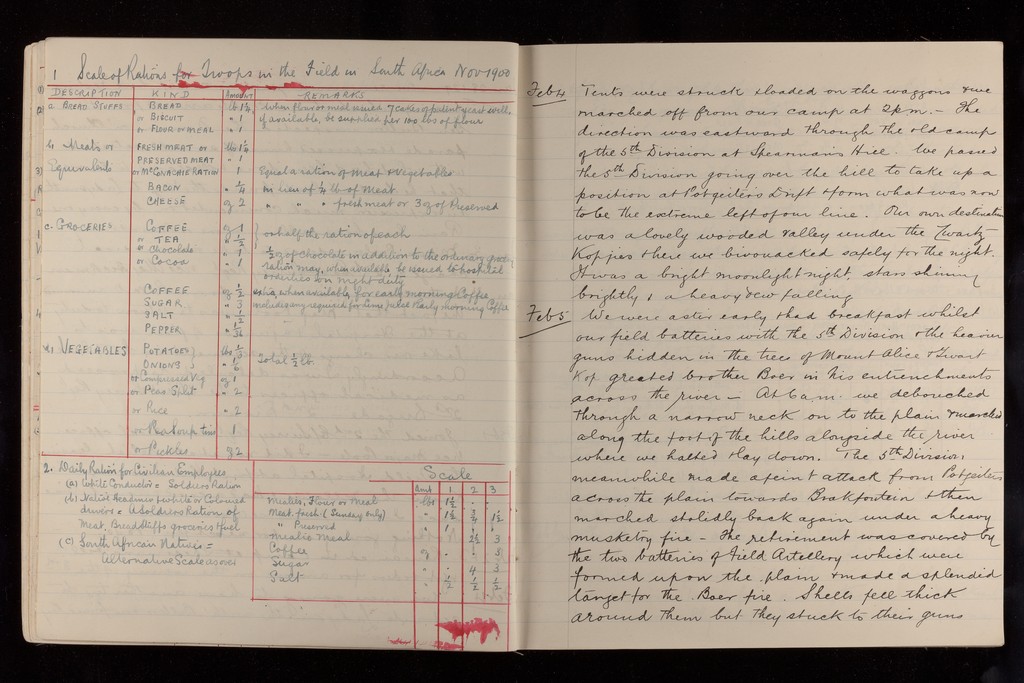 1 Scale of Rations for Troops in the Field in South Africa Nov 1900
DESCRIPTION KIND AMOUNT REMARKS
a. BREAD STUFFS BREAD lb 1¼ When flour or meal issued, 7 cakes of patent yeast will,
or BISCUIT " 1 if available, be supplied per 100 lbs of flour
or FLOUR OR MEAL " 1
b. Meats or FRESH MEAT OR lbs 1¼
Equivalents PRESERVED MEAT " 1
or McCONACHIE RATION 1 Equal a ration of Meat & Vegetables
BACON " ¼ in lieu of ¼ lb of Meat
CHEESE oz 2 " " " fresh meat or 3 oz of Preserved
c. GROCERIES COFFEE oz 1 or half the ration of each
or TEA " ½
or Chocolate " 1 ½ oz of chocolate in addition to the ordinary grocery
or Cocoa " 1 ration may, when available be issued to hospital
orderlies on night duty
COFFEE oz ½ extra, when available, for early morning Coffee
SUGAR " 3 includes any required for Lime juice & Early morning Coffee
SALT " ½
PEPPER " 1/36
d) VEGETABLES POTATOES lbs ⅓ Total ½ lb
ONIONS " ⅙
or Compressed Veg oz 1
or Peas Split " 2
or Rice " 2
1
or Pickles oz 2
2. Daily Ration for Civilian Employees
(a) White Conductor = Soldiers Ration
(b) Native Headmen & white or Coloured
drivers = A Soldiers Ration of
Meat, Breadstuffs groceries & fuel
(c) South African Natives =
Alternative Scale as over
Scale
Amt 1 2 3
Mealies, Flour or Meal lbs 1½ . .
Meat fresh (Sunday only) " 1½ ¾ 1½
" Preserved " 1 1
Mealie Meal " 2½ 3
Coffee oz
Sugar " 4 3
Salt " ½ ½ ½
Feb 4 Tents were struck & loaded on the waggons & we
marched off from our camp at 2 p.m. - The
direction was eastward through the old camp
of the 5th Division at Spearman's Hill. We passed
the 5th Division going over the hill to take up a
position at Potgieter's Drift & form what was now
to be the extreme left of our line. Our own destination
was a lovely wooded valley under the Zwartz
Kopjies & here we bivouacked safely for the night.
It was a bright moonlight night, stars shining
brightly & a heavy dew falling
Feb 5 We were astir early & had breakfast whilst
our field batteries with the 5th Division & the heavier
guns hidden in the trees of Mount Alice & Zwart
Kop greeted brother Boer in his entrenchments
across the river - At 6 a.m. we debouched
through a narrow neck on to the plain & marched
along the foot of the hills alongside the river
where we halted & lay down. The 5th Division
meanwhile made a feint attack from Potgieters
across the plain towards Brakfontein & then
marched stolidly back again under a heavy
musketry fire - The retirement was covered by
the two batteries of Field Artillery which were
formed up on the plain & made a splendid
target for the Boer fire. Shells fell thick
around them but they stuck to their guns